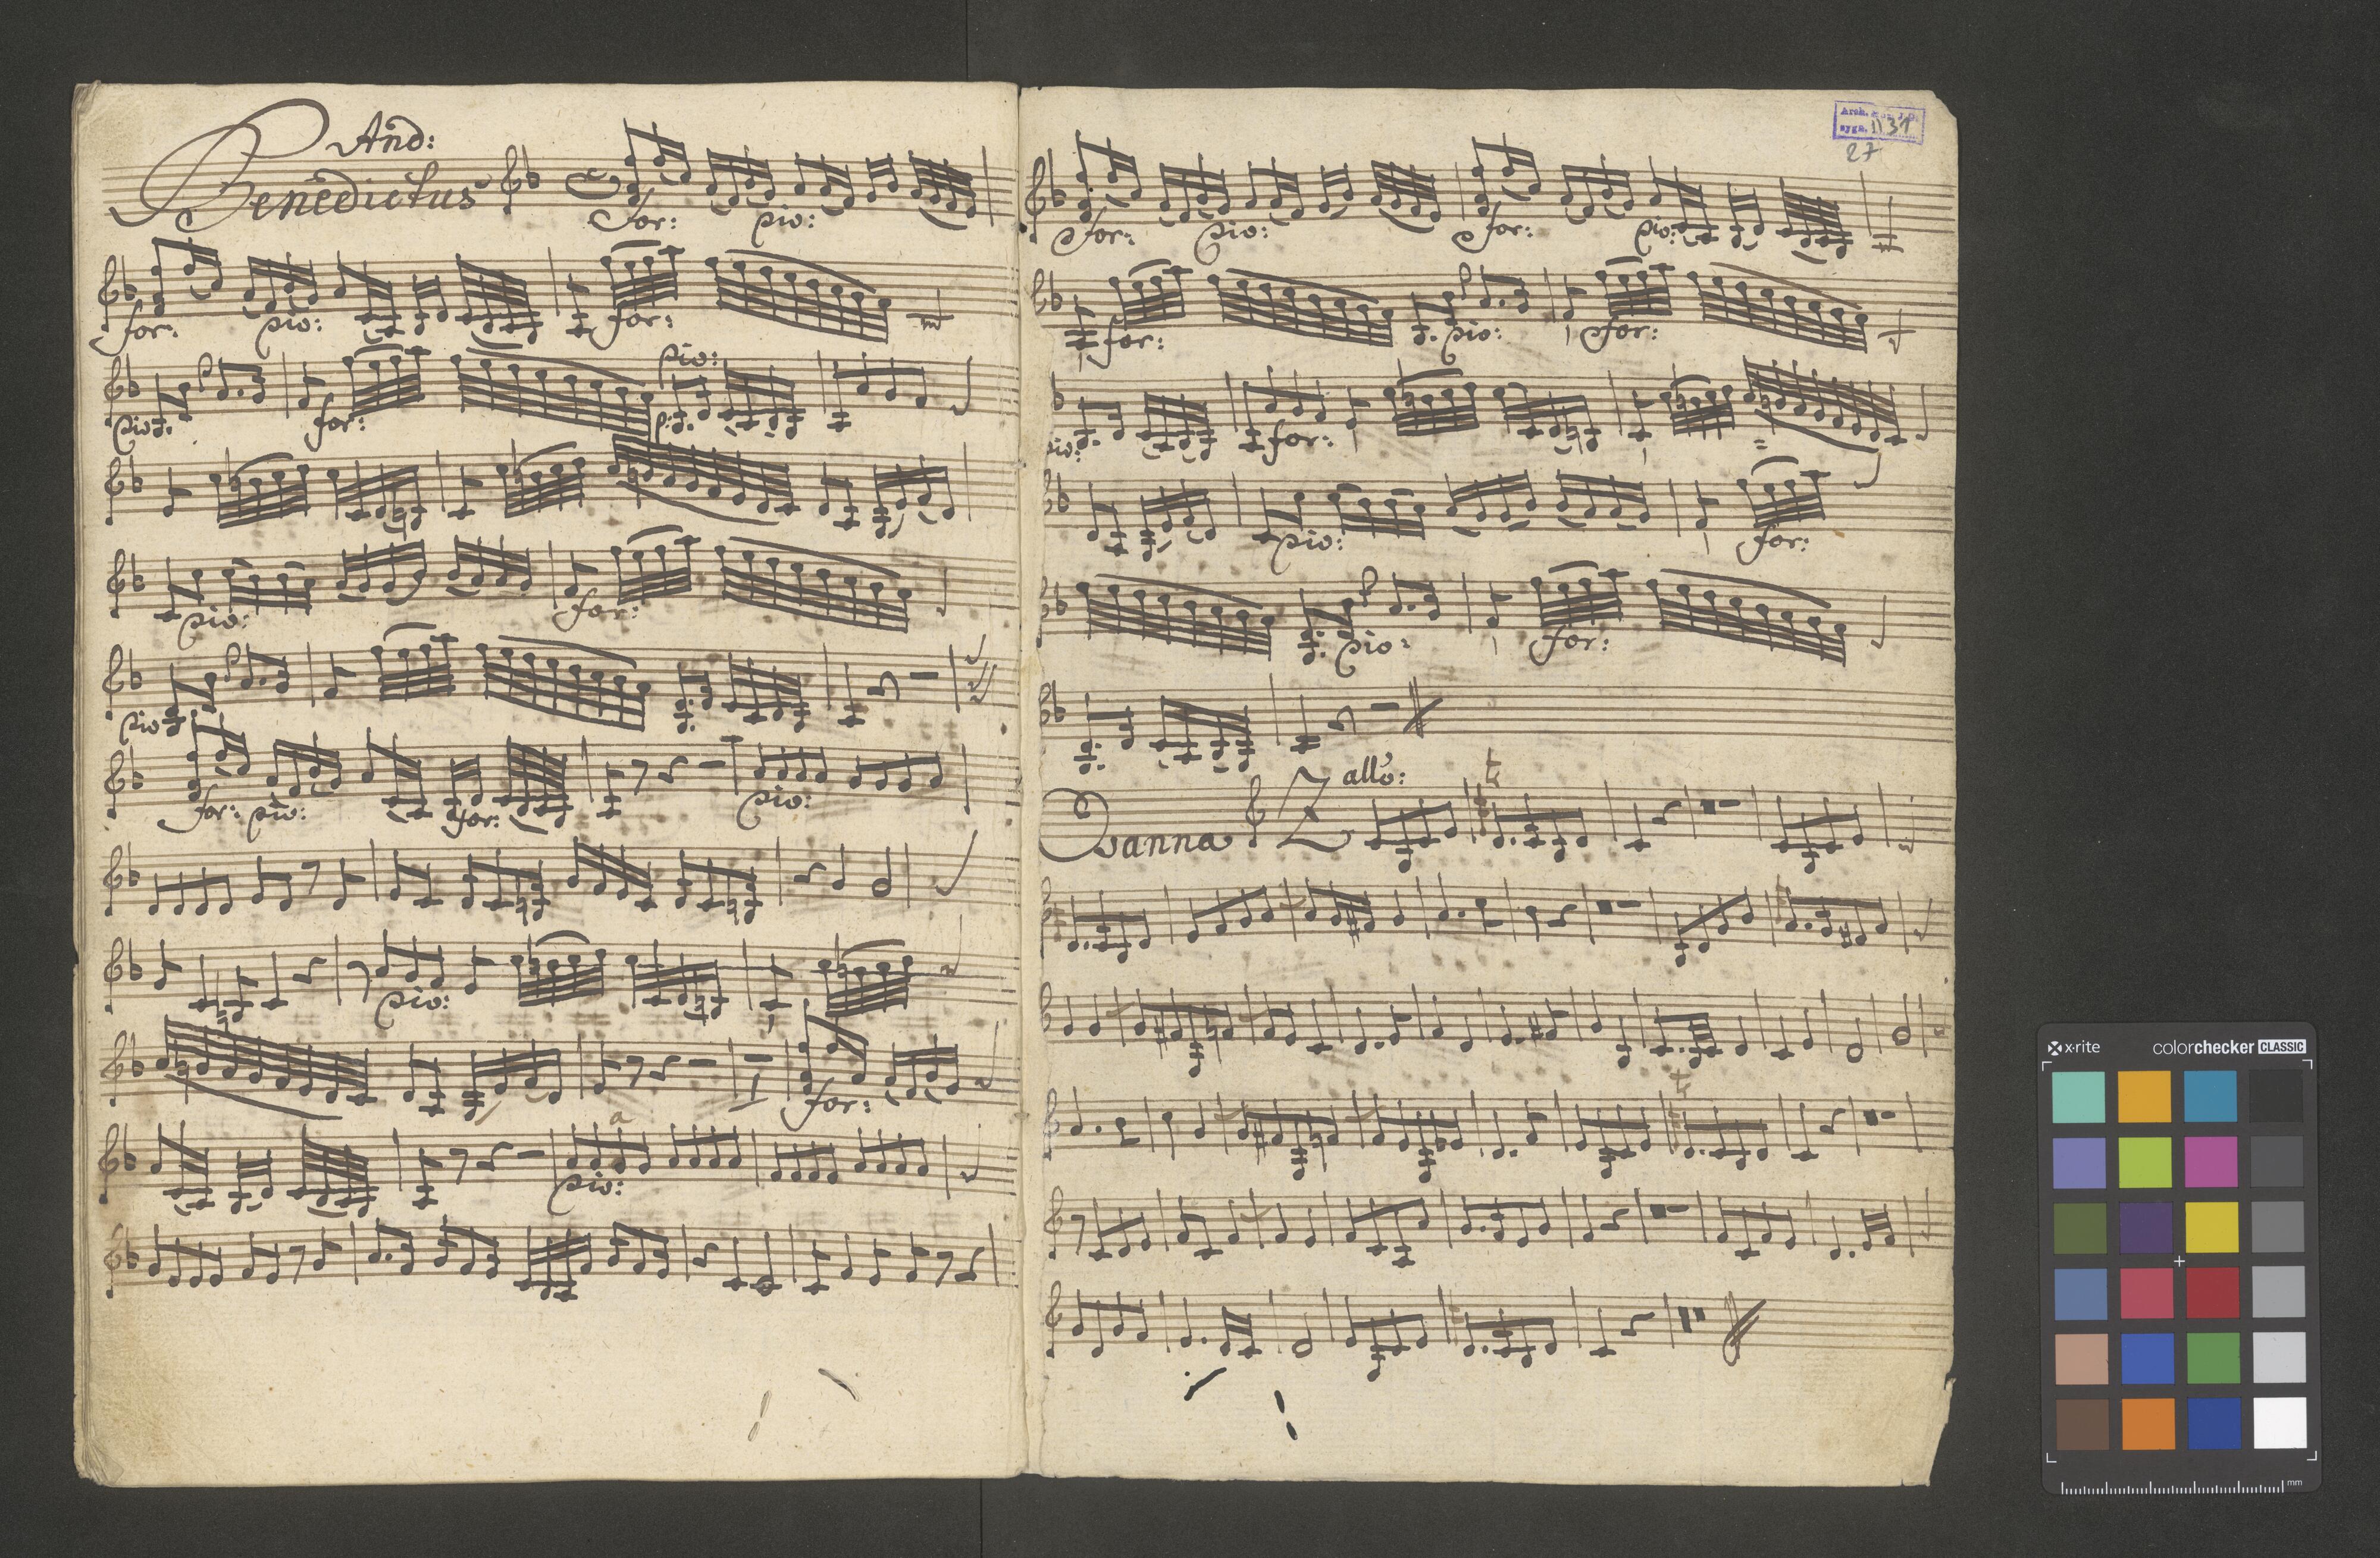 And:
Benedictus
for: pio:
for: pio: for:
pio:
pio: for: p:
pio: for:
pio:
for: pio: for: pio:
pio:
for:
a
pio:
Arch.
sygn. II 31
27
for: pio: for: pio:
for: pio: for:
pio: for:
pio: for:
pio: for:
allo:
tr
Osanna
tr
x-rite colorchecker CLASSIC
mm